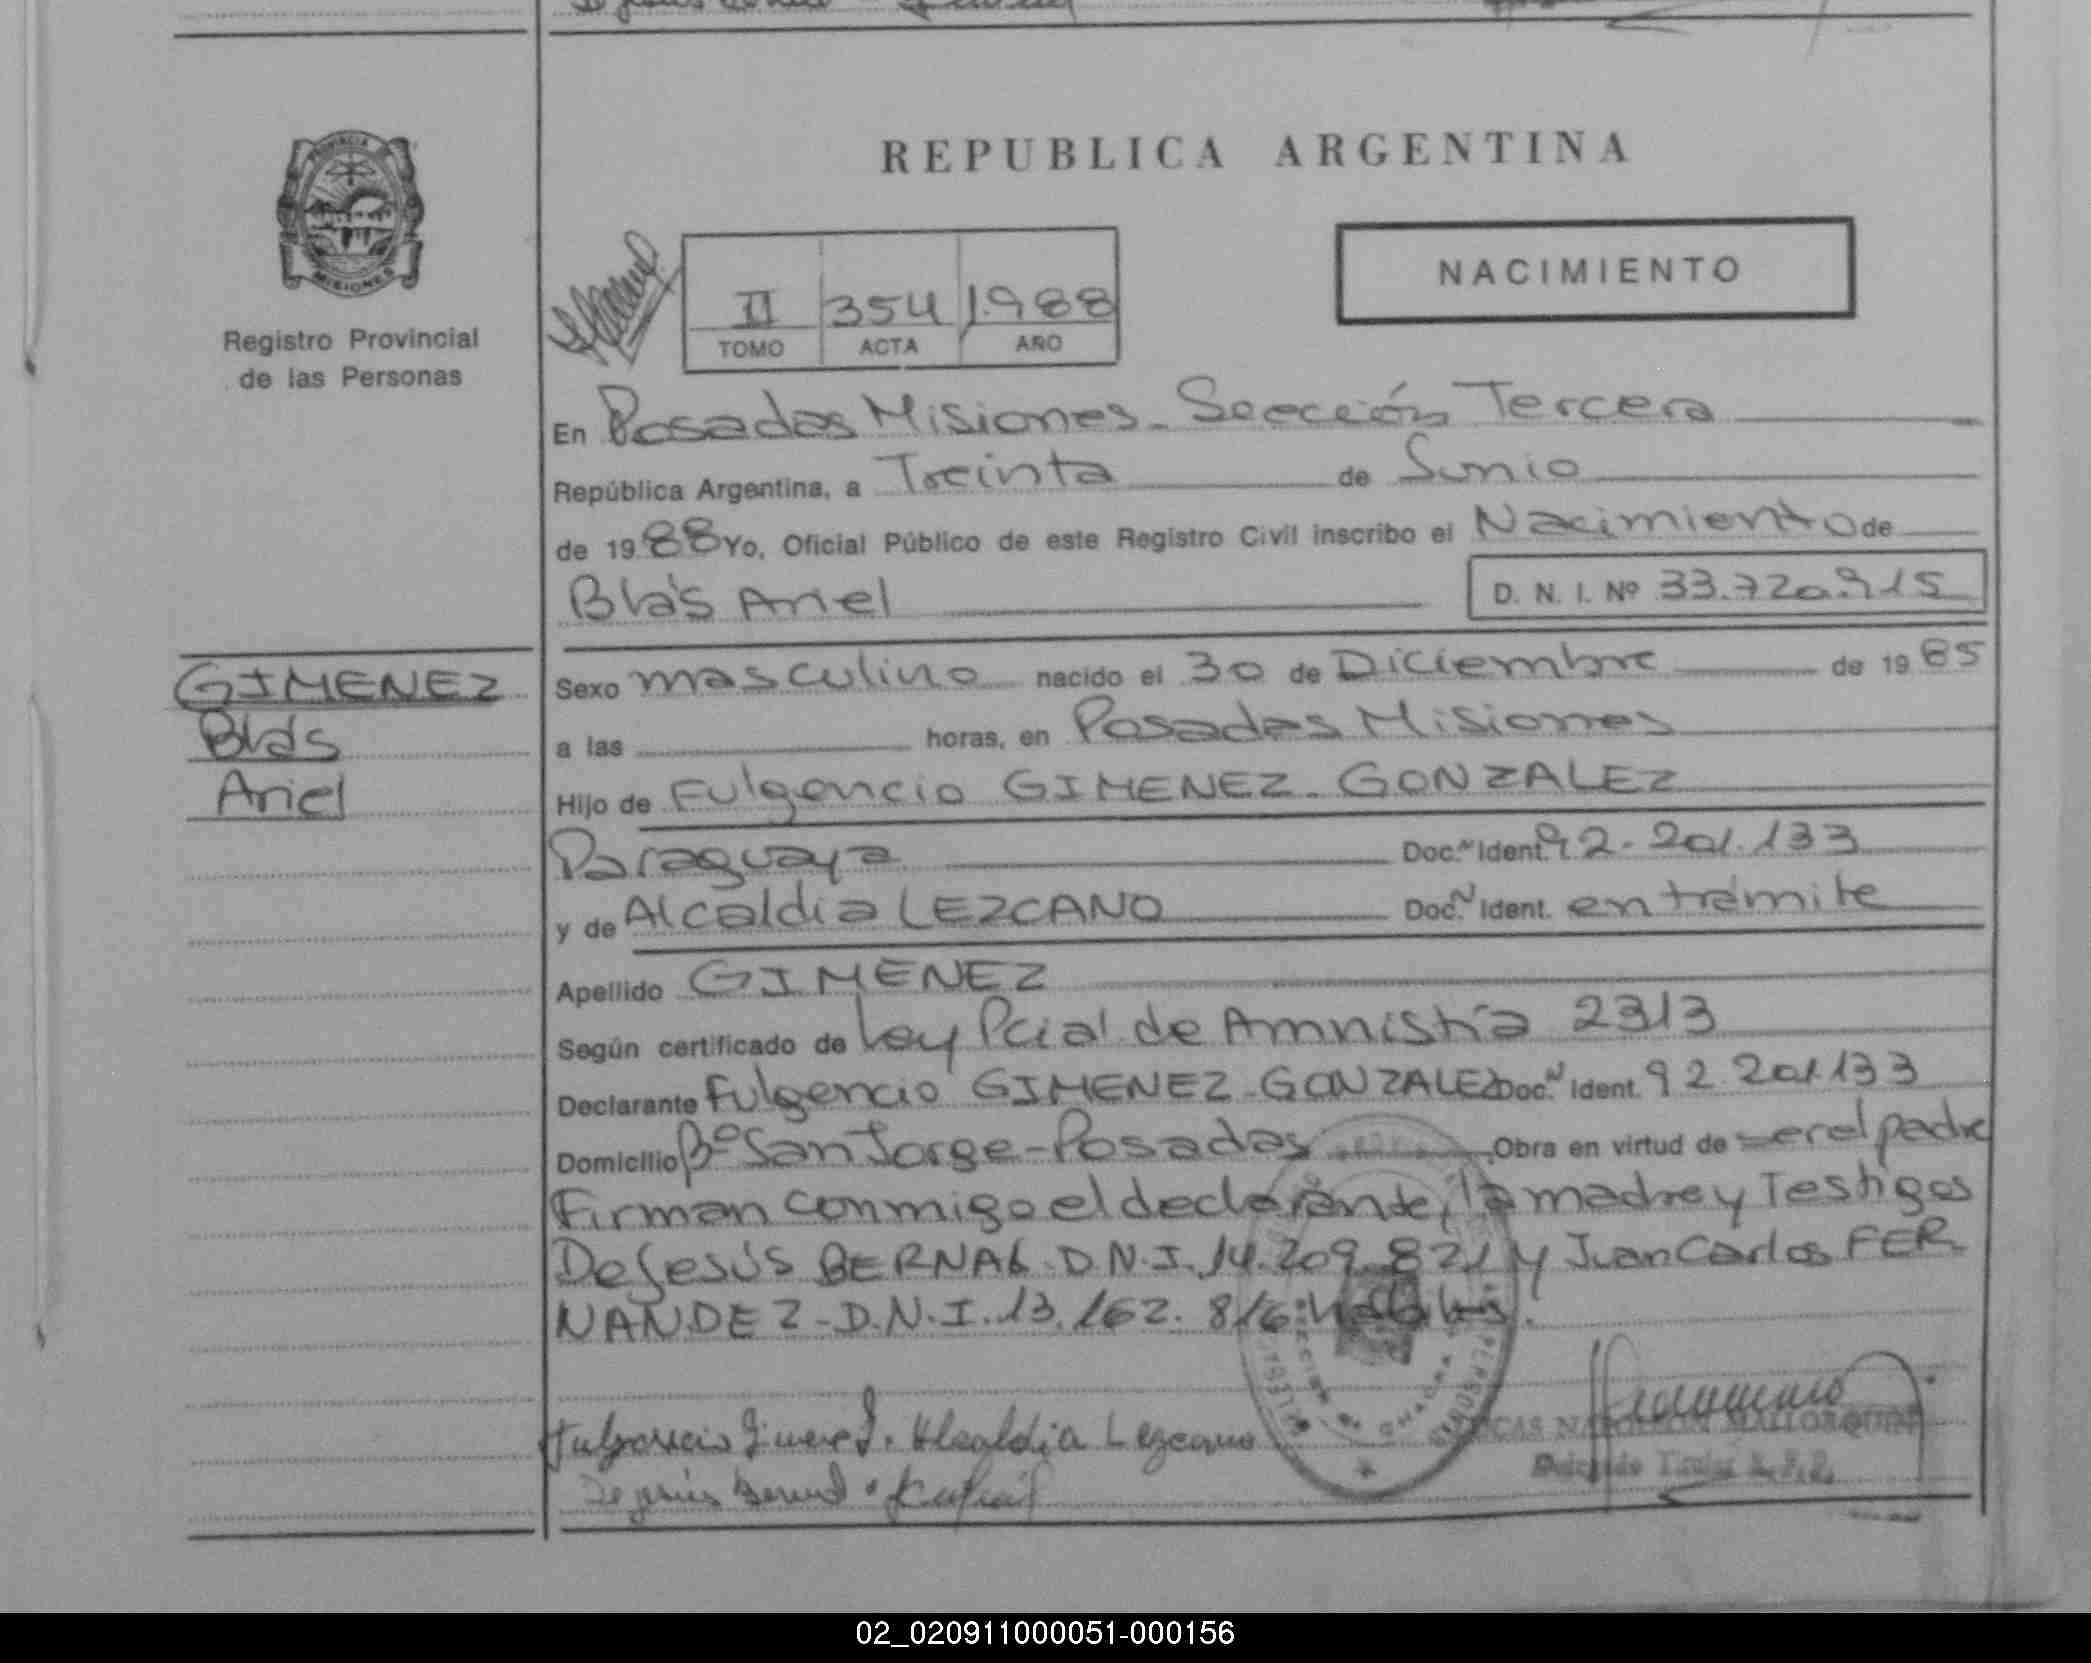 REPUBLICA ARGENTINA
NACIMIENTO
PROVINCIA DE
MISIONES
Registro Provincial
de las Personas
II 354 1.988
TOMO ACTA AÑO
En Posadas Misiones. Sección Tercera
República Argentina, a Treinta de Junio
de 1988 Yo, Oficial Público de este Registro Civil inscribo el Nacimiento de
Blás Ariel D. N. I. Nº 33.720.915
GIMENEZ
Blás
Ariel
Sexo masculino nacido el 30 de Diciembre de 1985
a las horas, en Posadas Misiones
Hijo de Fulgencio GIMENEZ. GONZALEZ
Paraguaya Doc.N Ident. 92.201.133
y de Alcaldia LEZCANO Doc.N Ident. en trámite
Apellido GIMENEZ
Según certificado de Ley Pcial de Amnistía 2313
Declarante Fulgencio GIMENEZ-GONZALEZ Doc.N Ident. 92.201133
Domicilio Bº San Jorge-Posadas Obra en virtud de ser el padre
Firman conmigo el declarante, la madre y Testigos
De Jesús BERNAL. D.N.I. 14.209.821 y Juan Carlos FER-
NANDEZ-D.N.I.13.162.816:
Fulgencio Gimenez. Alcaldia Lezcano
De jesús Bernal
02_020911000051-000156